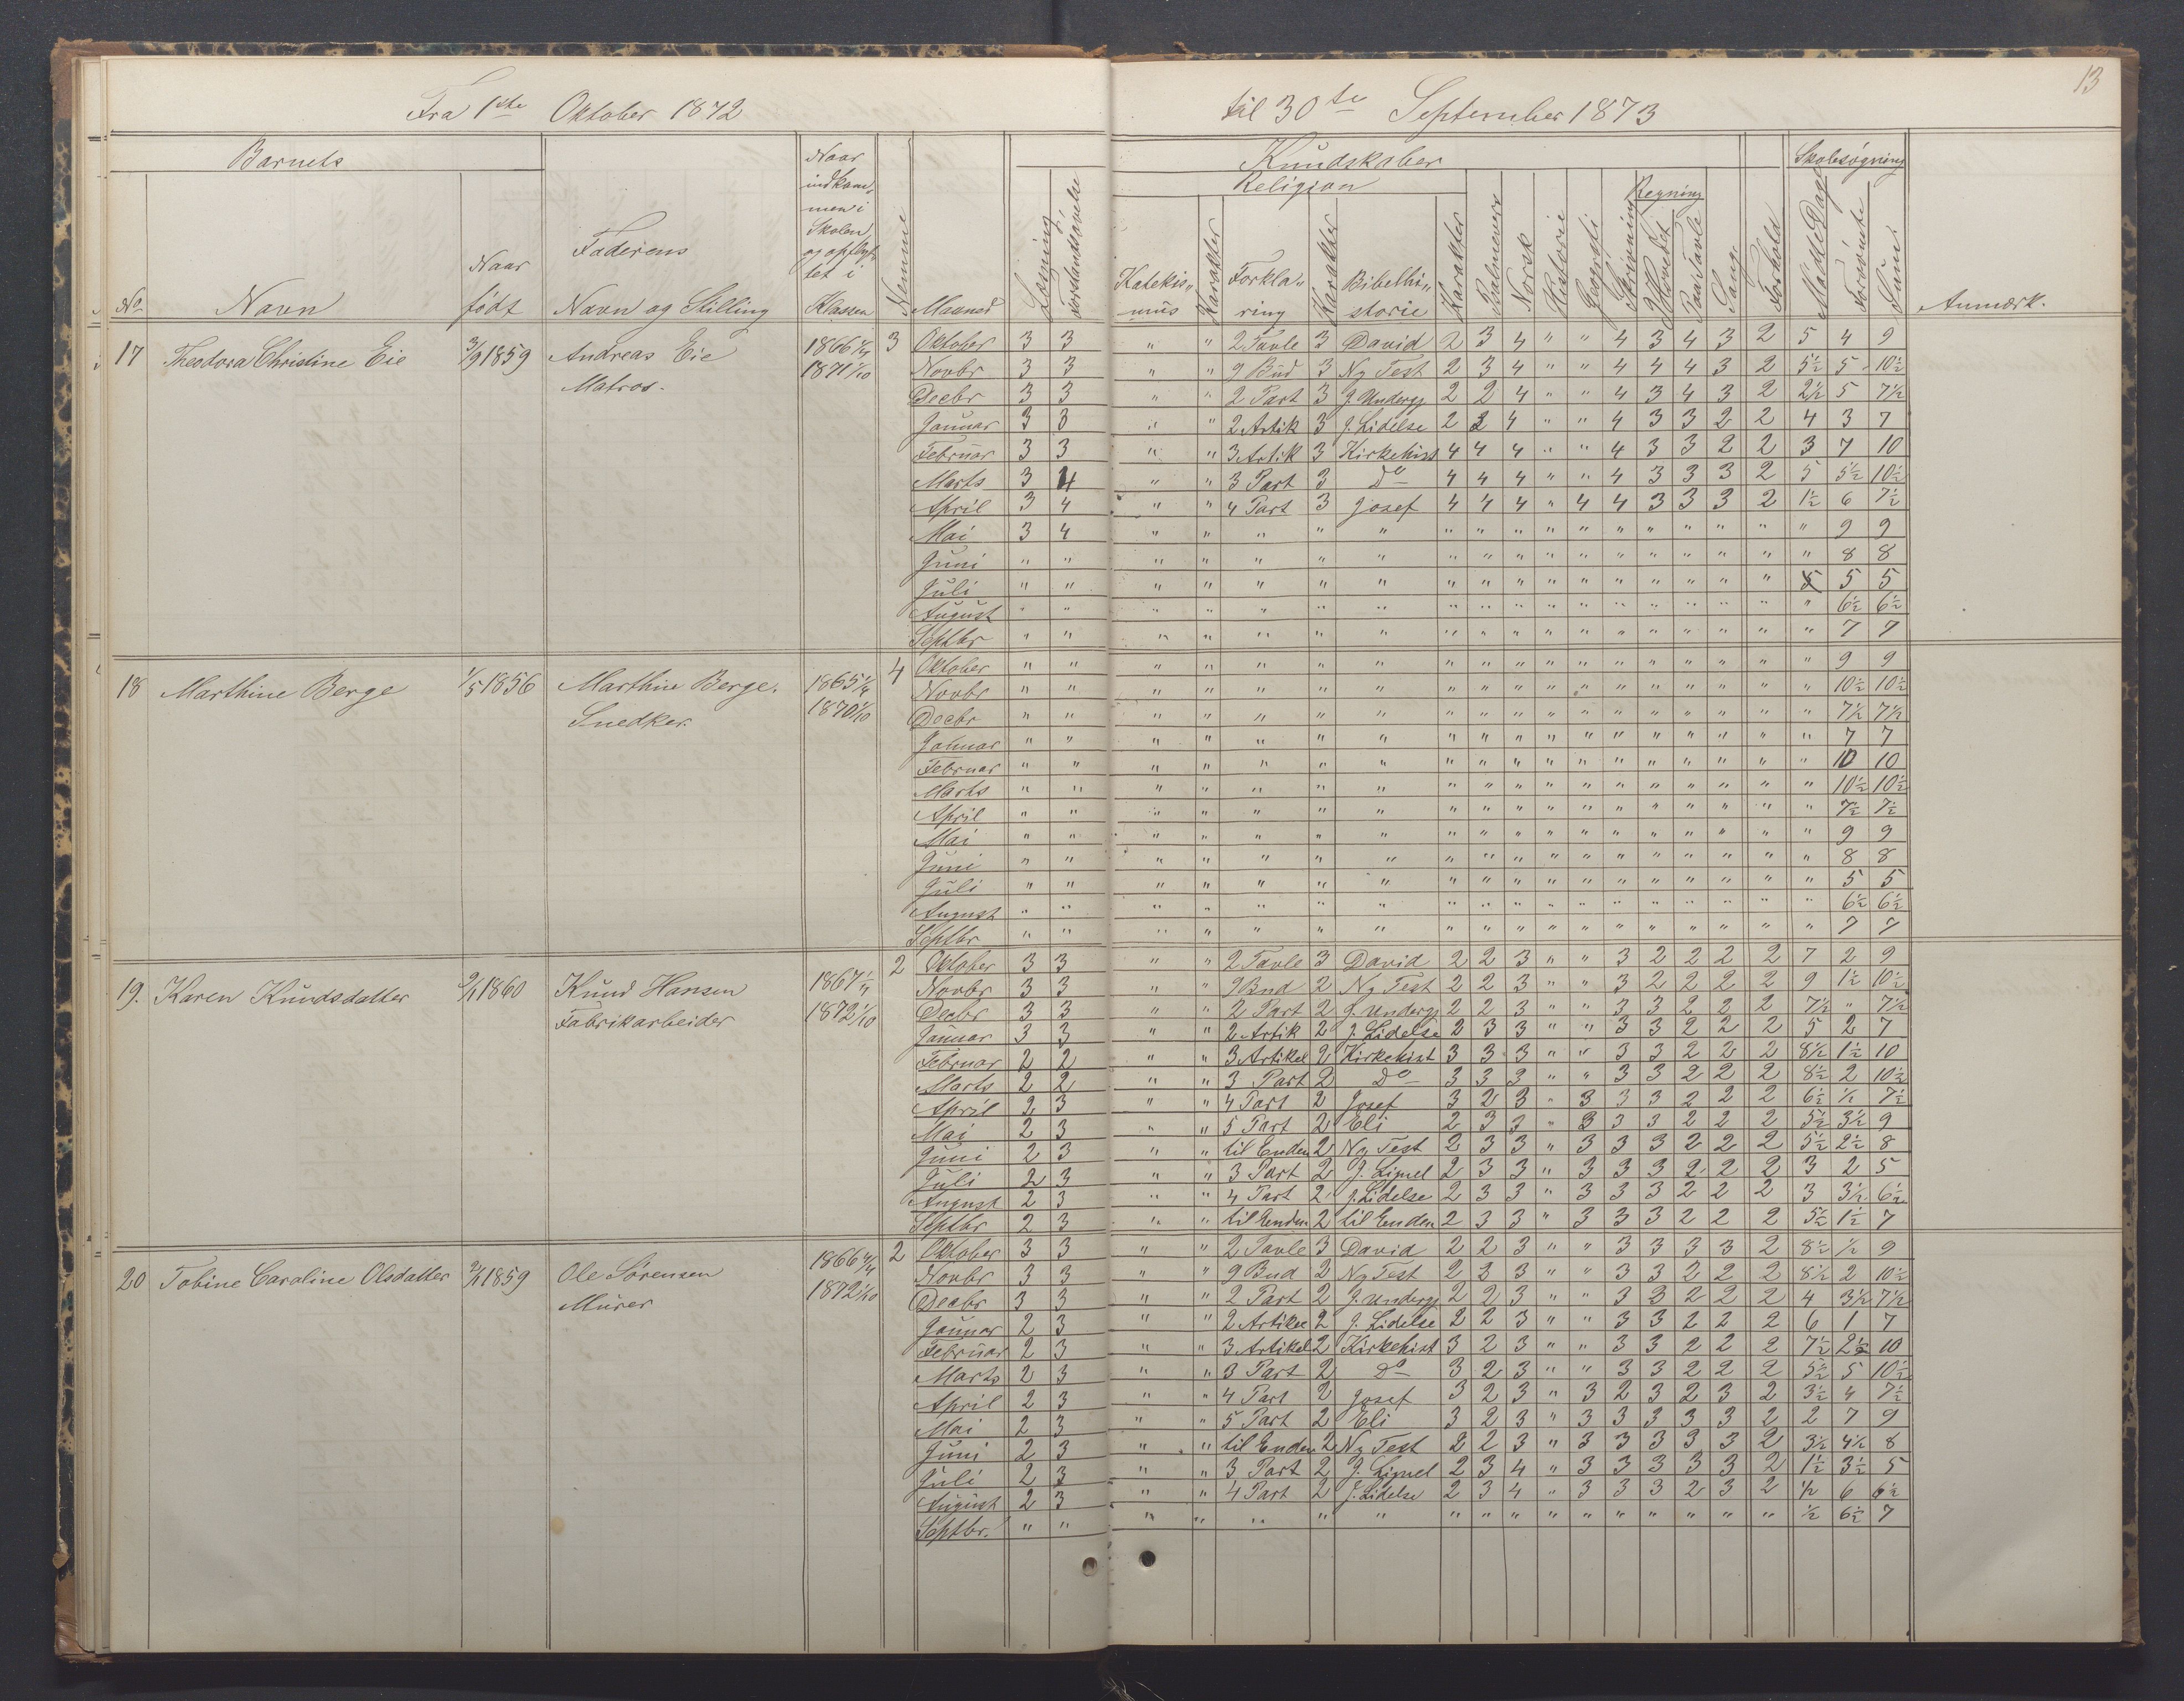 13
Fra 1ste Oktober 1872 til 30te September 1873
Barnets
Kundskaber
Skolesøgning
Religion
Regning
No Navn
Naar født
Faderens Navn og Stilling
Naar indkommen i Skolen og opflyttet i Klassen
Nemme
Maaned
Læsning
Forstandsøvelse
Katekismus
Karakter
Forklaring
Karakter
Bibelhistorie
Karakter
Psalmevers
Norsk
Historie
Geografi
Skrivning
I Hovedet
Paa Tavle
Sang
Forhold
Mødte Dage
Forsømte
Sum
Anmærk.
17 Theodora Christine Eie 3/9 1859 Andreas Eie Matros. 1866 1871 1/10 3
Oktober 3 3 " " 2 Tavle 3 David 2 3 4 " " 4 3 4 3 2 5 4 9
Novbr 3 3 " " 9 Bud 3 Ny Test 2 3 4 " " 4 4 4 3 2 5½ 5 10½
Decbr 3 3 " " 2 Part 3 J. Undergj 2 2 4 " " 4 3 4 3 2 2½ 5 7½
Januar 3 3 " " 2 Artik 3 J. Lidelse 2 2 4 " " 4 3 3 2 2 4 3 7
Februar 3 3 " " 3 Artik 3 Kirkehist 4 4 4 " " 4 3 3 2 2 3 7 10
Marts 3 4 " " 3 Part 3 Do 4 4 4 " " 4 3 3 3 2 5 5½ 10½
April 3 4 " " 4 Part 3 Josef 4 4 4 " 4 4 3 3 3 2 1½ 6 7½
Mai 3 4 " " " " " " " " " " " " " " " " 9 9
Juni " " " " " " " " " " " " " " " " " " 8 8
Juli " " " " " " " " " " " " " " " " " 5 5 5
August " " " " " " " " " " " " " " " " " " 6½ 6½
Septbr " " " " " " " " " " " " " " " " " " 7 7
18 Marthine Berge 1/5 1856 Marthin Berge. Snedker. 1865 1/4 1870 1/10 4
Oktober " " " " " " " " " " " " " " " " " " 9 9
Novbr " " " " " " " " " " " " " " " " " " 10½ 10½
Decbr " " " " " " " " " " " " " " " " " " 7½ 7½
Januar " " " " " " " " " " " " " " " " " " 7 7
Februar " " " " " " " " " " " " " " " " " " 10 10
Marts " " " " " " " " " " " " " " " " " " 10½ 10½
April " " " " " " " " " " " " " " " " " " 7½ 7½
Mai " " " " " " " " " " " " " " " " " " 9 9
Juni " " " " " " " " " " " " " " " " " " 8 8
Juli " " " " " " " " " " " " " " " " " " 5 5
August " " " " " " " " " " " " " " " " " " 6½ 6½
Septbr " " " " " " " " " " " " " " " " " " 7 7
19. Karen Knudsdatter 1860 Knud Hansen Fabrikarbeider 1867 1872 1/10 2
Oktober 3 3 " " 2 Tavle 3 David 2 2 3 " " 3 2 2 2 2 7 2 9
Novbr 3 3 " " 9 Bud 2 Ny Test 2 2 3 " " 3 2 2 2 2 9 1½ 10½
Decbr 3 3 " " 2 Part 2 J. Undergj 2 2 3 " " 3 3 2 2 2 7½ " 7½
Januar 3 3 " " 2 Artik 2 J. Lidelse 2 3 3 " " 3 3 2 2 2 5 2 7
Februar 2 2 " " 3 Artikel 2 Kirkehist 3 3 3 " " 3 3 2 2 2 8½ 1½ 10
Marts 2 2 " " 3 Part 2 Do 3 3 3 " " 3 3 2 2 2 8½ 2 10½
April 2 3 " " 4 Part 2 Josef 3 2 3 " 3 3 3 2 2 2 6½ ½ 7½
Mai 2 3 " " 5 Part 2 Eli 2 3 3 " 3 3 3 2 2 2 5½ 3½ 9
Juni 2 3 " " til Enden 2 Ny Test 2 3 3 " 3 3 3 2 2 2 5½ 2½ 8
Juli 2 3 " " 3 Part 2 J. Lignel 2 3 3 " 3 3 3 2 2 2 3 2 5
August 2 3 " " 4 Part 2 J. Lidelse 2 3 3 " 3 3 3 2 2 2 3 3½ 6½
Septbr 2 3 " " til Enden 2 til Enden 2 3 3 " 3 3 3 2 2 2 5½ 1½ 7
20 Tobine Caroline Olsdatter 1859 Ole Sørensen Murer 1866 1872 1/10 2
Oktober 3 3 " " 2 Tavle 3 David 2 2 3 " " 3 3 3 3 2 8½ ½ 9
Novbr 3 3 " " 9 Bud 2 Ny Test 2 2 3 " " 3 3 2 2 2 8½ 2 10½
Decbr 3 3 " " 2 Part 2 J. Undergj 2 2 3 " " 3 3 2 2 2 4 3½ 7½
Januar 2 3 " " 2 Artikel 2 J. Lidelse 2 2 3 " " 3 3 2 2 2 6 1 7
Februar 2 3 " " 3 Artikel 2 Kirkehist 3 2 3 " " 3 3 2 2 2 7½ 2½ 10
Marts 2 3 " " 3 Part 2 Do 3 2 3 " " 3 3 2 2 2 5½ 5 10½
April 2 3 " " 4 Part 2 Josef 3 2 3 " 3 2 3 2 3 2 3½ 4 7½
Mai 2 3 " " 5 Part 2 Eli 3 2 3 " 3 3 3 3 3 2 2 7 9
Juni 2 3 " " til Enden 2 Ny Test 2 2 3 " 3 3 3 3 3 2 3½ 4½ 8
Juli 2 3 " " 3 Part 2 J. Lignel 2 3 4 " 3 3 3 3 3 2 1½ 3½ 5
August 2 3 " " 4 Part 2 J. Lidelse 2 3 4 " 3 3 3 2 3 2 ½ 6 6½
Septbr. " " " " " " " " " " " " " " " " " ½ 6½ 7